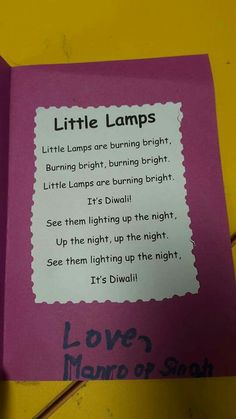 Little Lamps
Little Lamps are burning bright,
Burning bright, burning bright.
Little Lamps are burning bright.
It's Diwali!
See them lighting up the night,
Up the night, up the night.
See them lighting up the night,
It's Diwali!
Love,
Singh